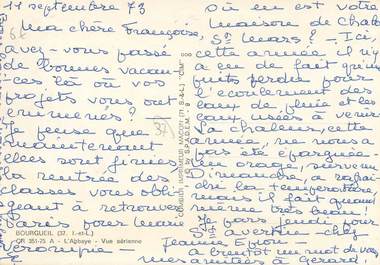 11 septembre 73
Ma chère Françoise,
avez-vous passé
de bonnes vacan-
ces là où vos
projets vous ont
emmenés ? -
Je pense que
maintenant
elles sont finies
la rentrée des
classes vous obli-
geant à retrouver
Paris pour Marie
BOURGUEIL (37. I.-et-L.)
CR 351-75 A - L'Abbaye - Vue aérienne
COMBIER IMPRIMEUR MACON (71 S.-&-L.) "CIM"
où en est votre
maison de
St Mars ? - Ici,
cette année il n'y
a eu de fait qu'
puits perdu pour
l'écoulement des
eaux de pluie et les
eaux usées à venir.
La chaleur, cette
année, ne nous a
pas été épargnée.
Un orage, survenu
Dimanche, a rafraî-
chi la température,
mais il fait quand
même très beau !
Je pars jeudi pour
St Avertin chez
Jeanne
a bientôt un mot de vous
mes amitiés à Gérard.